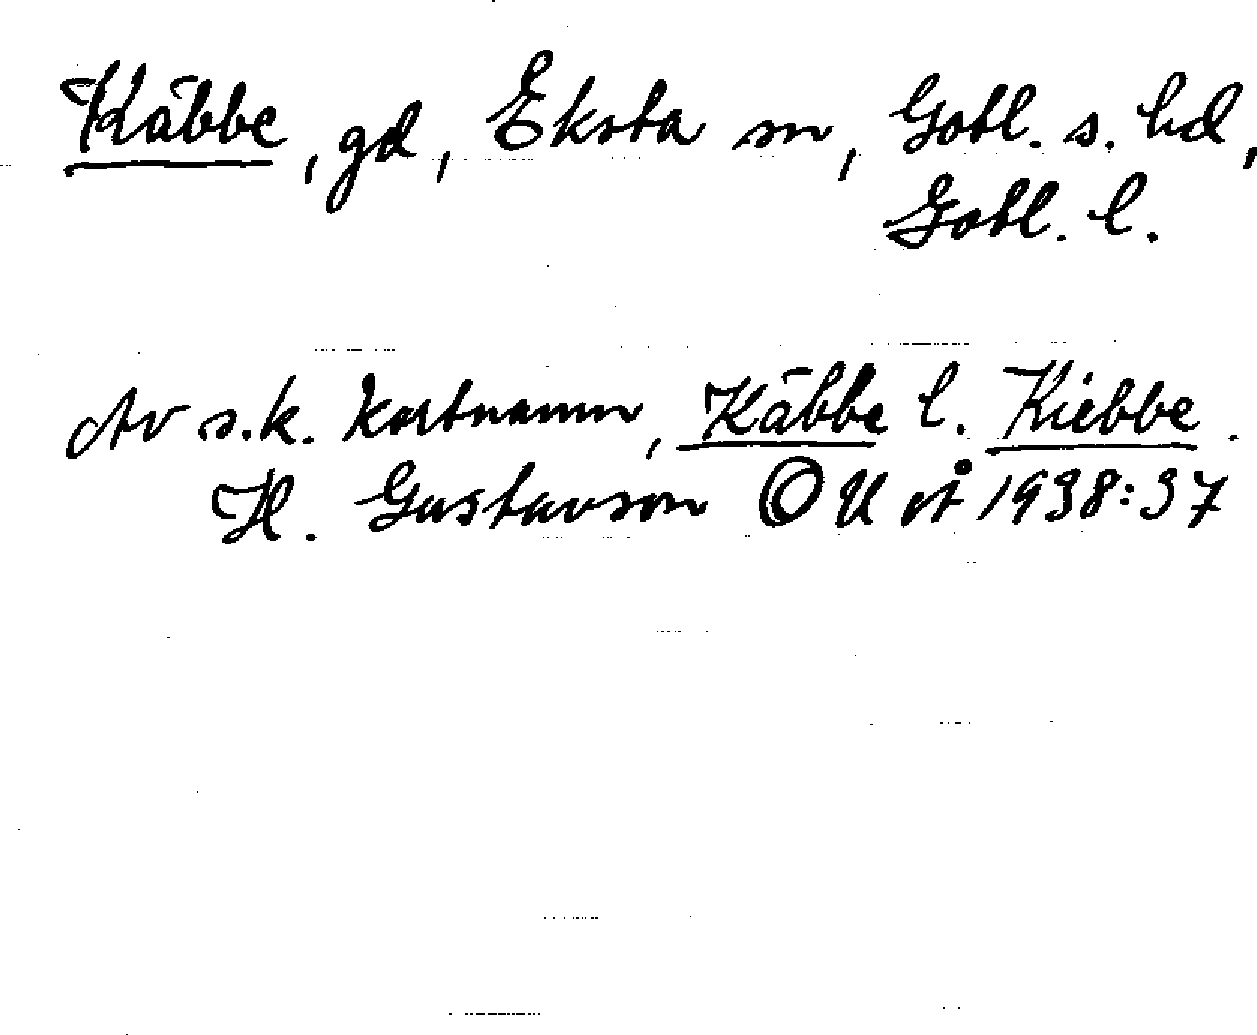 Käbbe, gd, Eksta sn, Gotl. s. hd,
Gotl. l.
Av s.k. kortnamn, Käbbe l. Kiebbe.
H. Gustavson OU å 1938:37